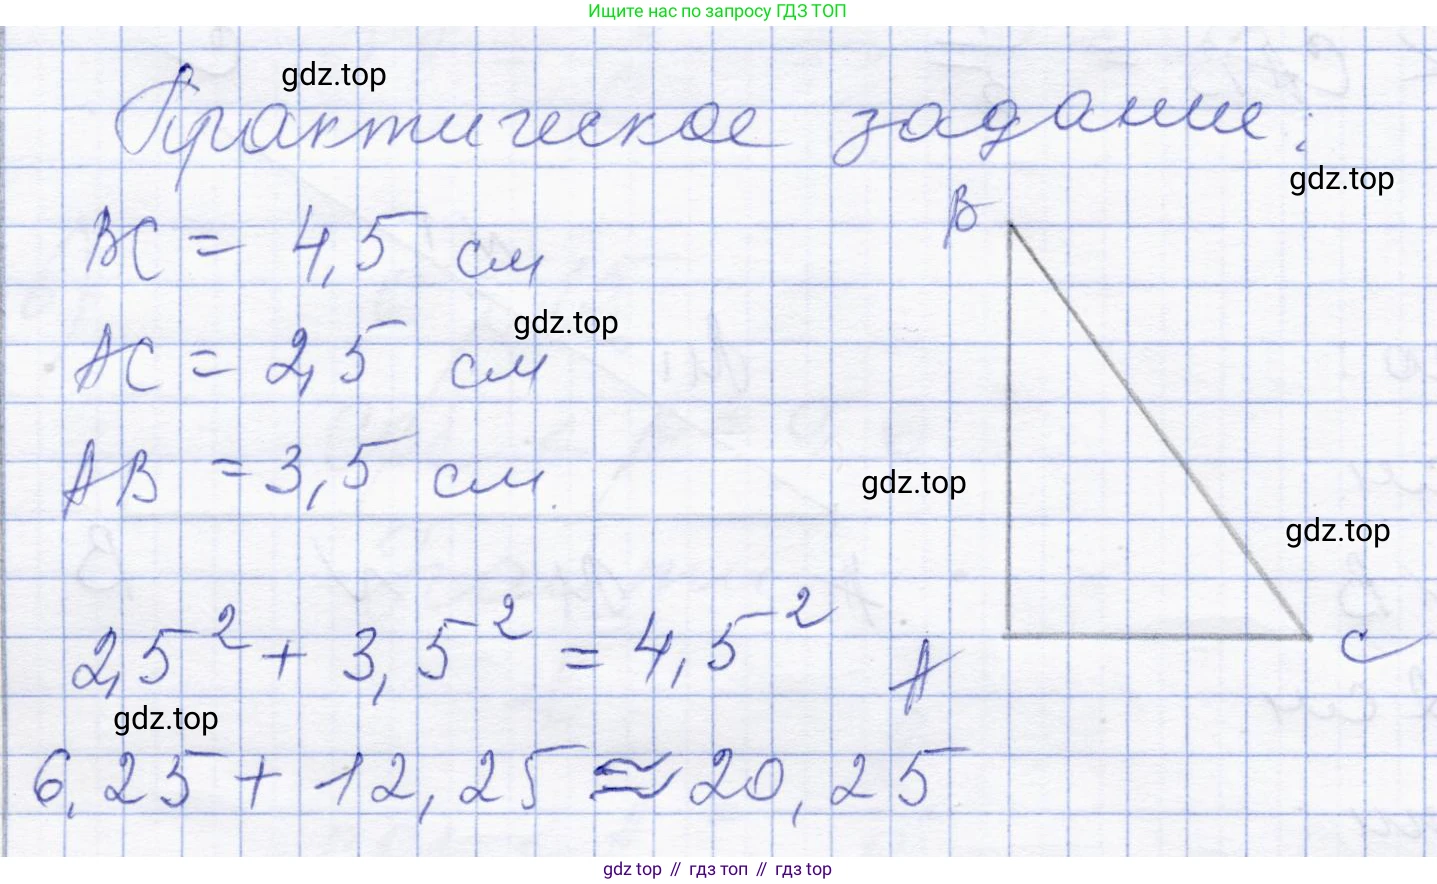 Ищите нас по запросу ГДЗ ТОП
gdz.top
Практическое задание:
gdz.top
B
BC = 4,5 см
gdz.top
AC = 2,5 см
AB = 3,5 см
gdz.top
gdz.top
2,5² + 3,5² = 4,5²
A
C
gdz.top
6,25 + 12,25 ≈ 20,25
gdz top // гдз топ // гдз top